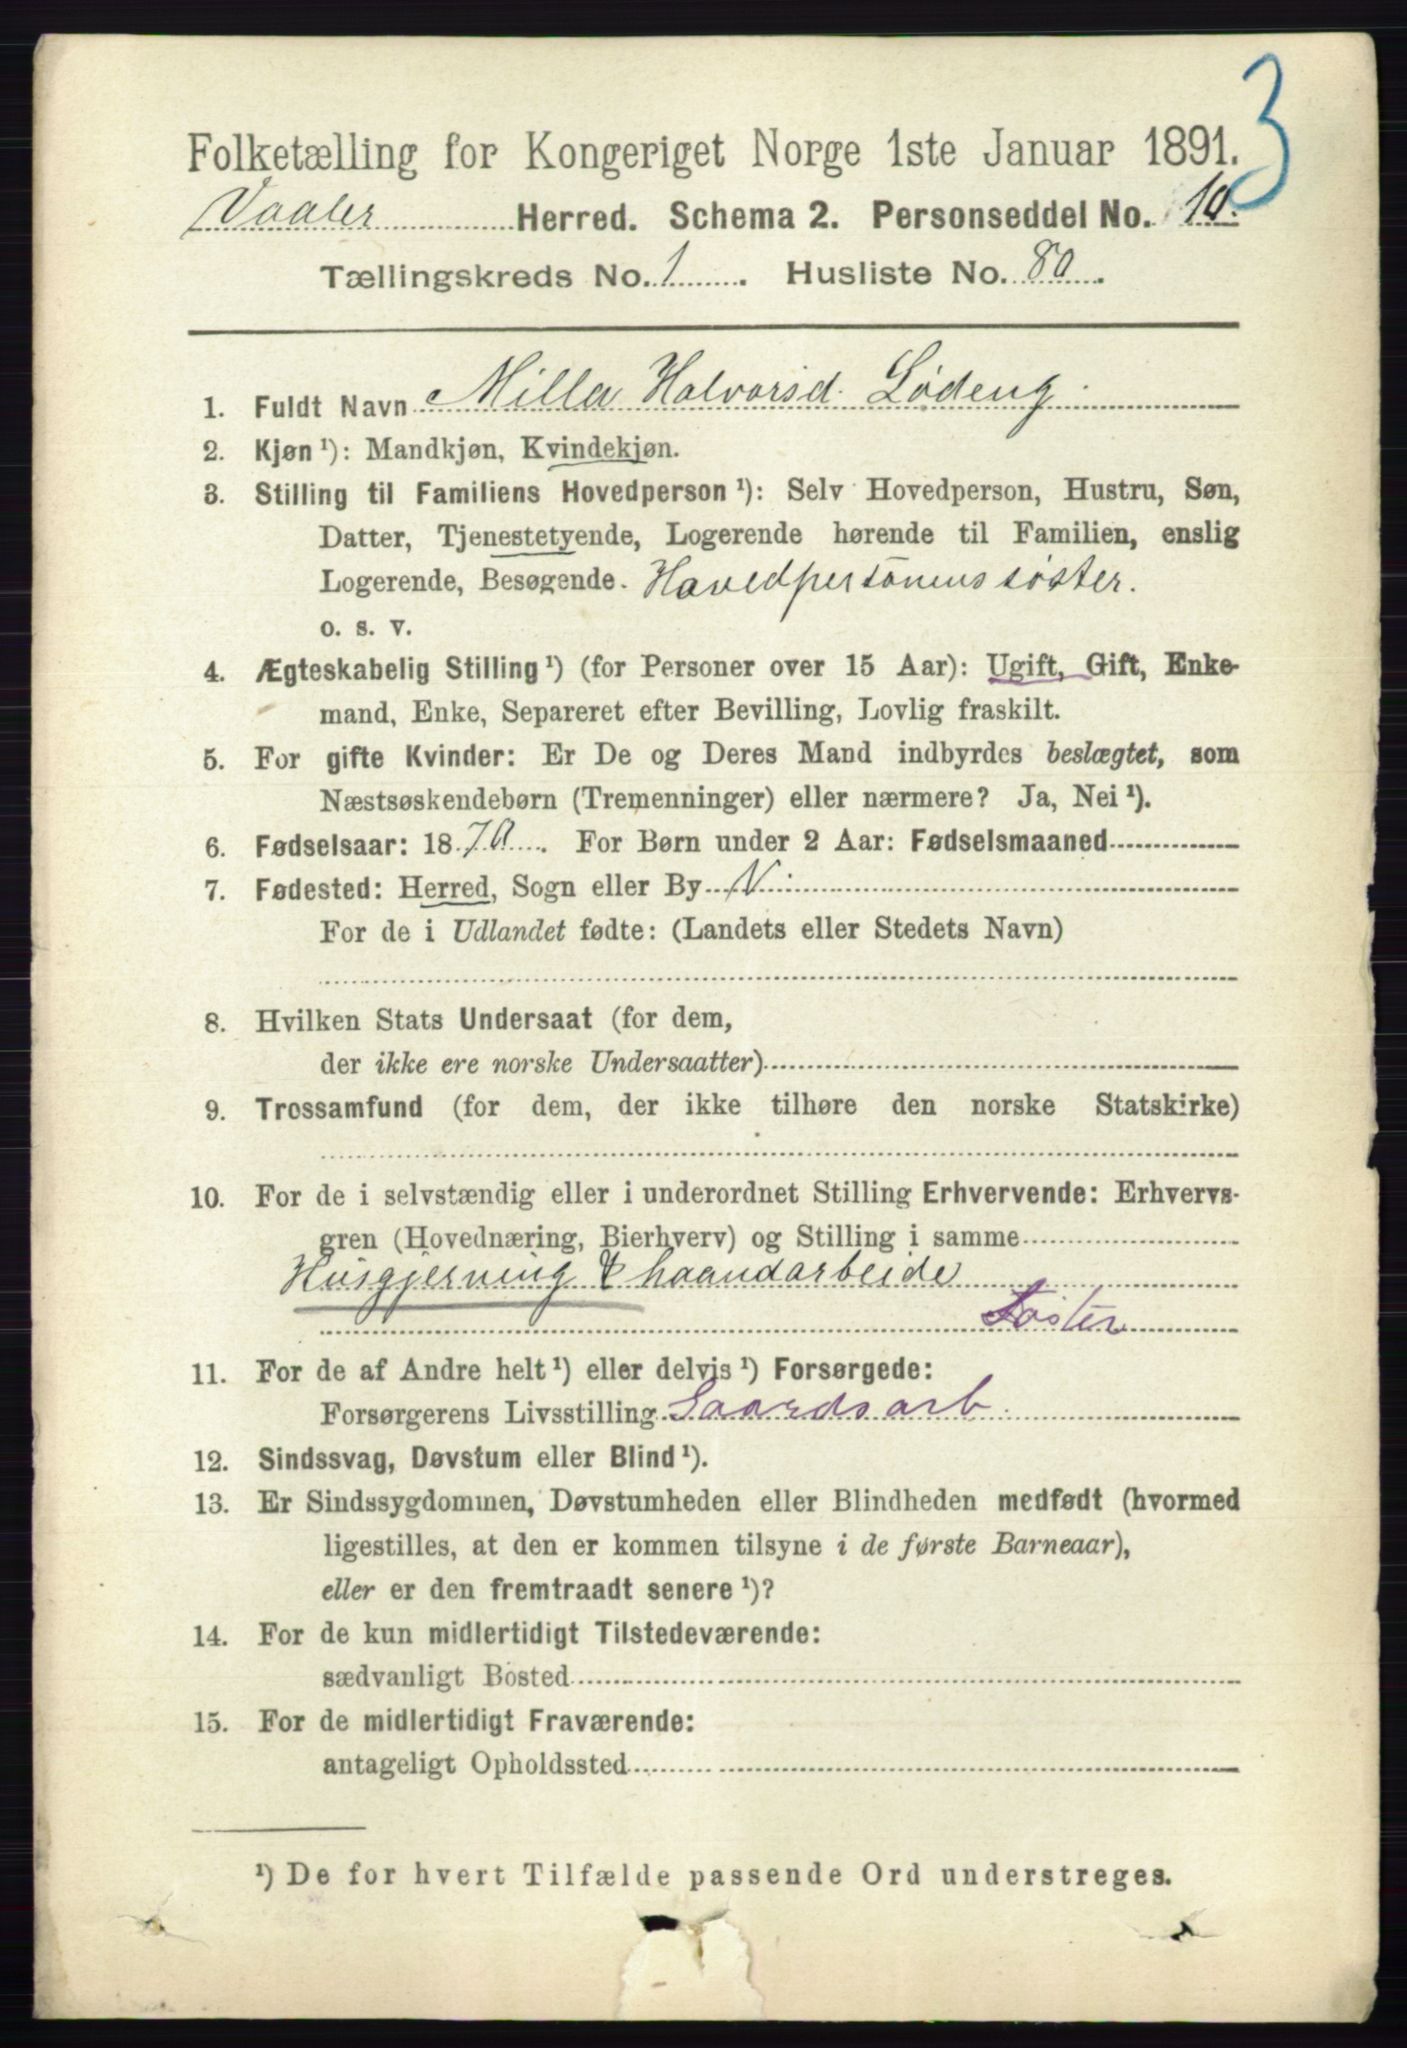 3
Folketælling for Kongeriget Norge 1ste Januar 1891.
Vaaler Herred. Schema 2. Personseddel No. 10.
Tællingskreds No. 1. Husliste No. 80.
1. Fuldt Navn Milla Halvorsd. Lødeng.
2. Kjøn ¹): Mandkjøn, Kvindekjøn.
3. Stilling til Familiens Hovedperson ¹): Selv Hovedperson, Hustru, Søn,
Datter, Tjenestetyende, Logerende hørende til Familien, enslig
Logerende, Besøgende. Hovedpersonens søster.
o. s. v.
4. Ægteskabelig Stilling ¹) (for Personer over 15 Aar): Ugift, Gift, Enke-
mand, Enke, Separeret efter Bevilling, Lovlig fraskilt.
5. For gifte Kvinder: Er De og Deres Mand indbyrdes beslægtet, som
Næstsøskendebørn (Tremenninger) eller nærmere? Ja, Nei ¹).
6. Fødselsaar: 1870. For Børn under 2 Aar: Fødselsmaaned
7. Fødested: Herred, Sogn eller By V.
For de i Udlandet fødte: (Landets eller Stedets Navn)
8. Hvilken Stats Undersaat (for dem,
der ikke ere norske Undersaatter)
9. Trossamfund (for dem, der ikke tilhøre den norske Statskirke)
10. For de i selvstændig eller i underordnet Stilling Erhvervende: Erhvervs-
gren (Hovednæring, Bierhverv) og Stilling i samme
Husgjerning & haandarbeide
Søster
11. For de af Andre helt ¹) eller delvis ¹) Forsørgede:
Forsørgerens Livsstilling Gaardsarb.
12. Sindssvag, Døvstum eller Blind ¹).
13. Er Sindssygdommen, Døvstumheden eller Blindheden medfødt (hvormed
ligestilles, at den er kommen tilsyne i de første Barneaar),
eller er den fremtraadt senere ¹)?
14. For de kun midlertidigt Tilstedeværende:
sædvanligt Bosted
15. For de midlertidigt Fraværende:
antageligt Opholdssted
¹) De for hvert Tilfælde passende Ord understreges.